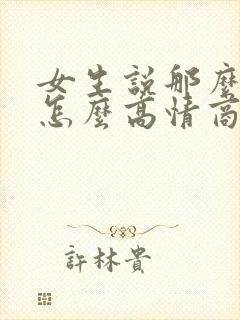 女生説那麼
怎麼高情商
許林貴